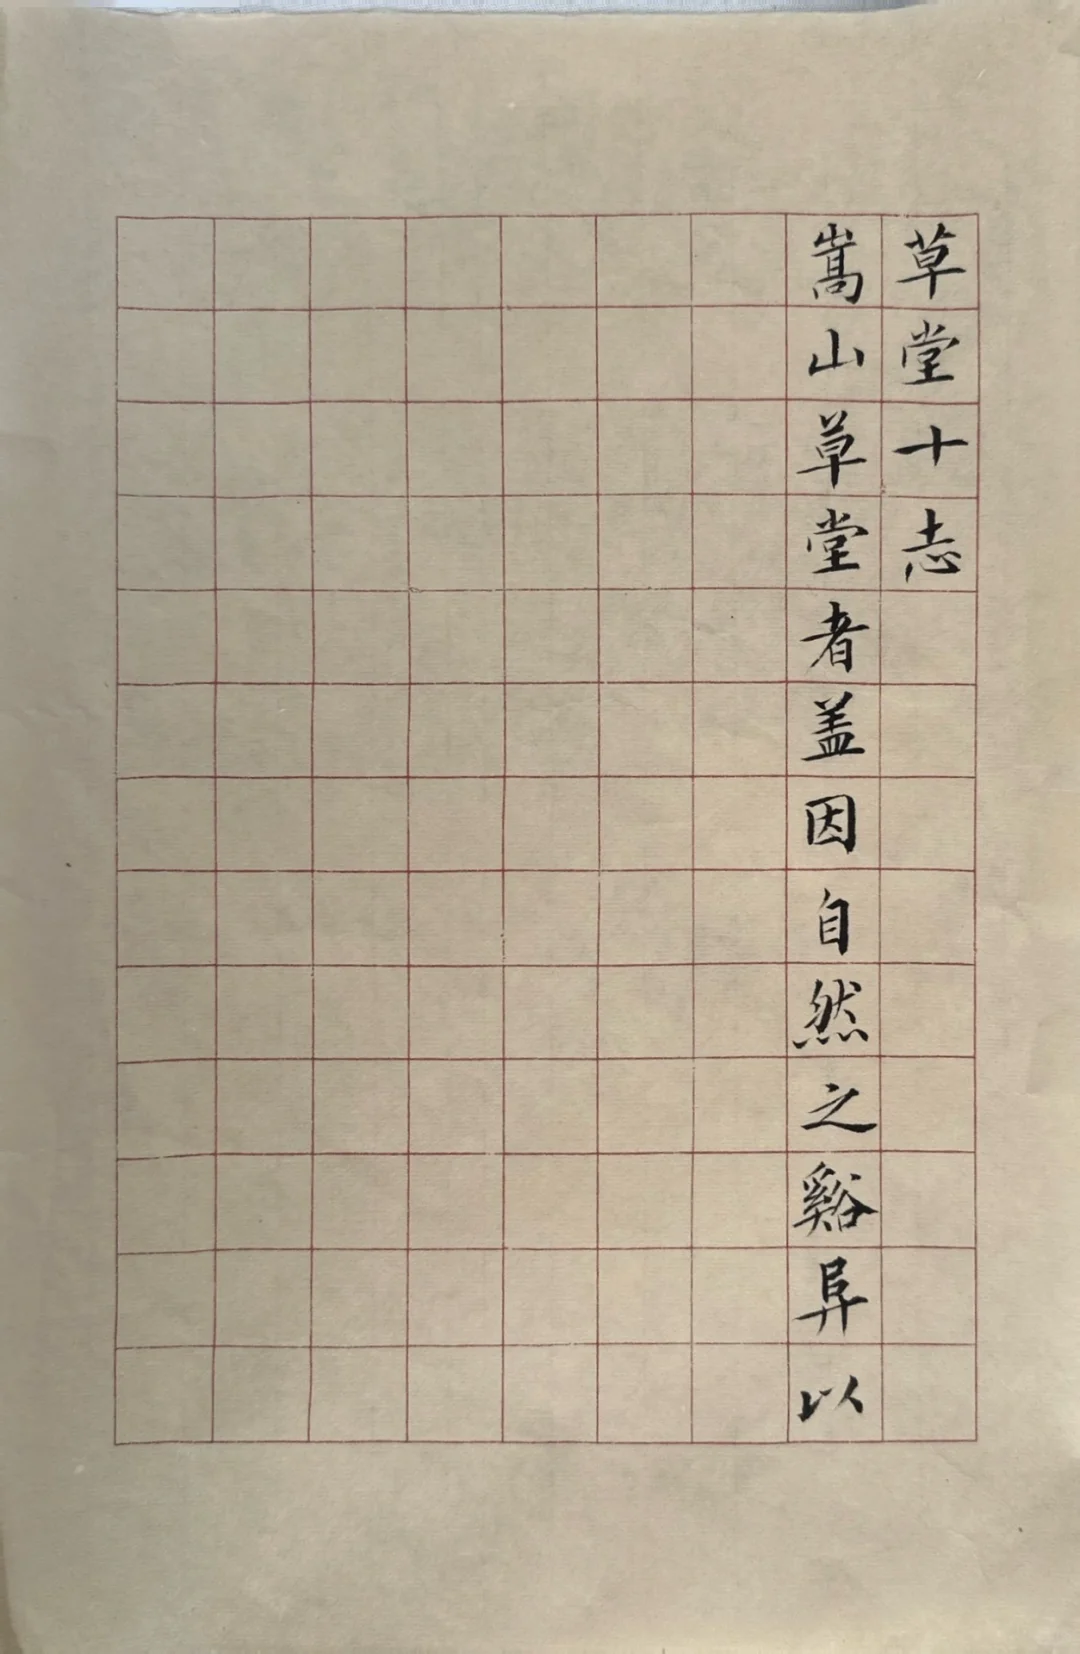 草堂十志
嵩山草堂者盖因自然之谿阜以